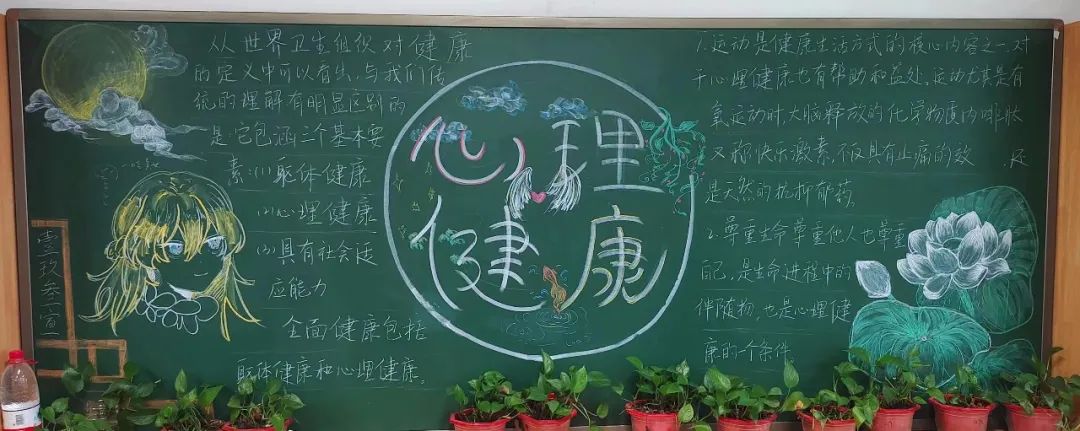 从世界卫生组织对健康
的定义中可以看出,与我们传
统的理解有明显区别的
是,它包涵三个基本要
素:(1)躯体健康
(2)心理健康
(3)具有社会适
应能力
全面健康包括
躯体健康和心理健康。
壹玖叁宣
心理
健康
1.运动是健康生活方式的核心内容之一,对
于心理健康也有帮助和益处,运动尤其是有
氧运动时,大脑释放的化学物质内啡肽
又称快乐激素,不仅具有止痛的效 ,还
是天然的抗抑郁药。
2.尊重生命尊重他人也尊重
自己,是生命进程中的
伴随物,也是心理健
康的一个条件。